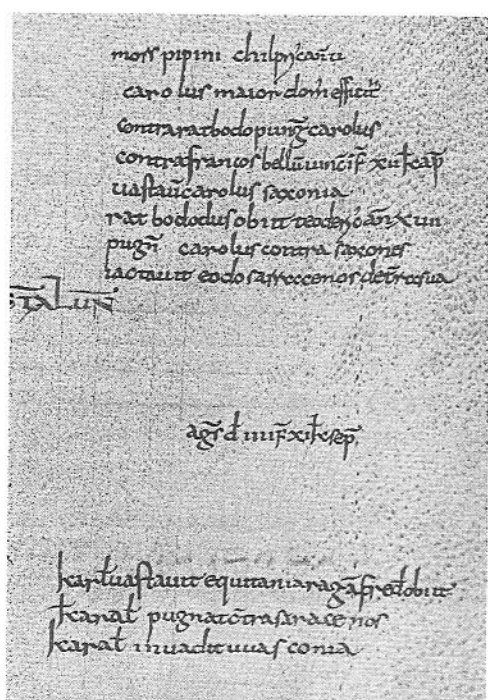 mors pipini
carolus maior dom̄ efficit̄
contra ratbodo pung̅ carolus
contra francos bellū uinc xii kł ap̅
uastau̅ carolus saxonia
rat bodo dus obiit
pugn̅ carolus contra saxones
iactauit eodo sarrecenos de tr̅a sua
d̵ iiii f̅ xi kł sep̅
karł uastauit equitania ragāfred obiit
karał pugnat cōtra saracenos
karał inuadit uuasconia